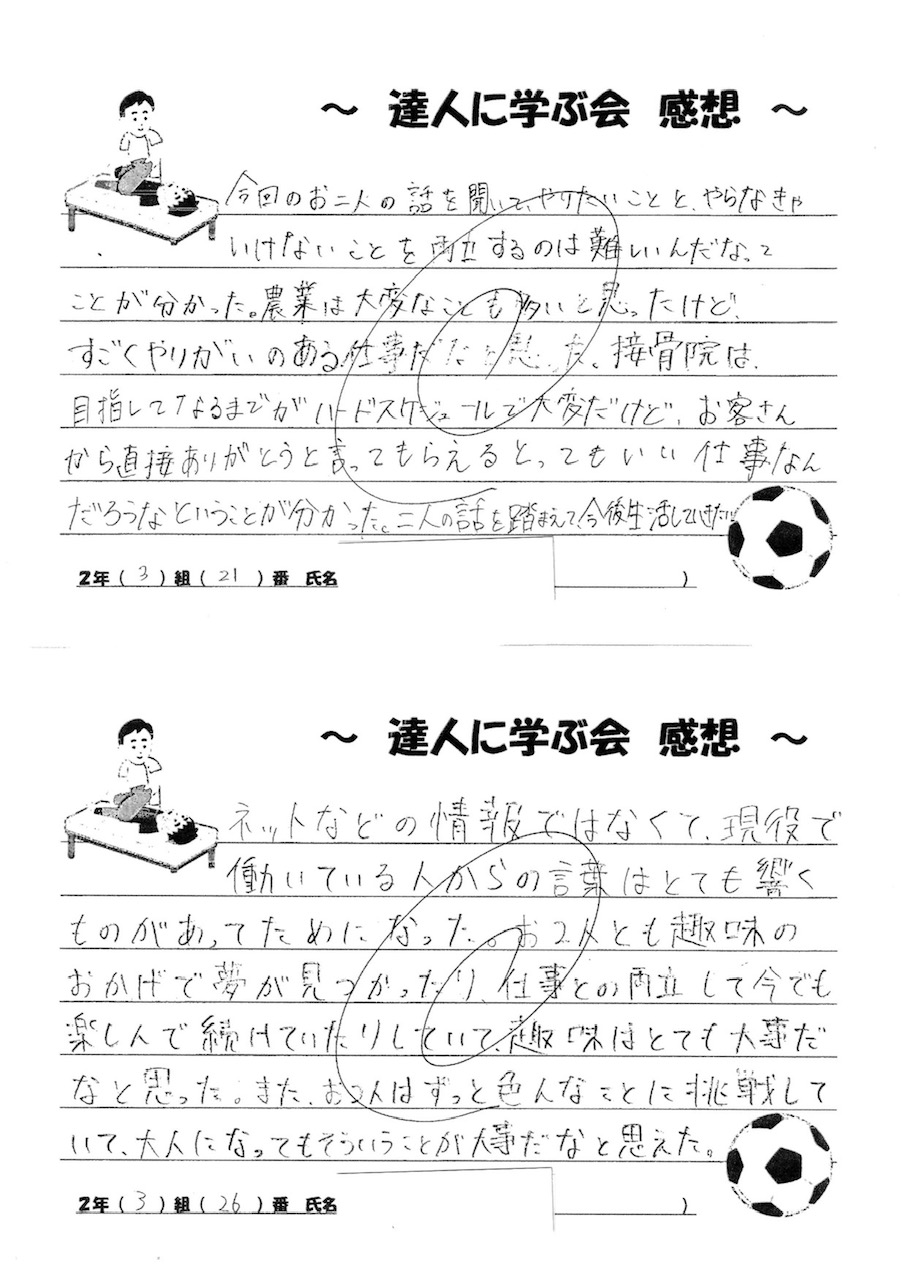 ～ 達人に学ぶ会 感想 ～
今回のお二人の話を聞いて、やりたいことと、やらなきゃ
いけないことを両立するのは難しいんだなって
ことが分かった。農業は大変なことも多いと思ったけど、
すごくやりがいのある仕事だなと思った。接骨院は、
目指してなるまでがハードスケジュールで大変だけど、お客さん
から直接ありがとうと言ってもらえるとってもいい仕事なん
だろうなということが分かった。二人の話を踏まえて、今後生活していきたい
2年（3）組（21）番 氏名 ）
～ 達人に学ぶ会 感想 ～
ネットなどの情報ではなくて、現役で
働いている人からの言葉はとても響く
ものがあってためになった。お2人とも趣味の
おかげで夢が見つかったり、仕事との両立して今でも
楽しんで続けていたりしていて、趣味はとても大事だ
なと思った。また、お2人はずっと色んなことに挑戦して
いて、大人になってもそういうことが大事だなと思えた。
2年（3）組（26）番 氏名 ）